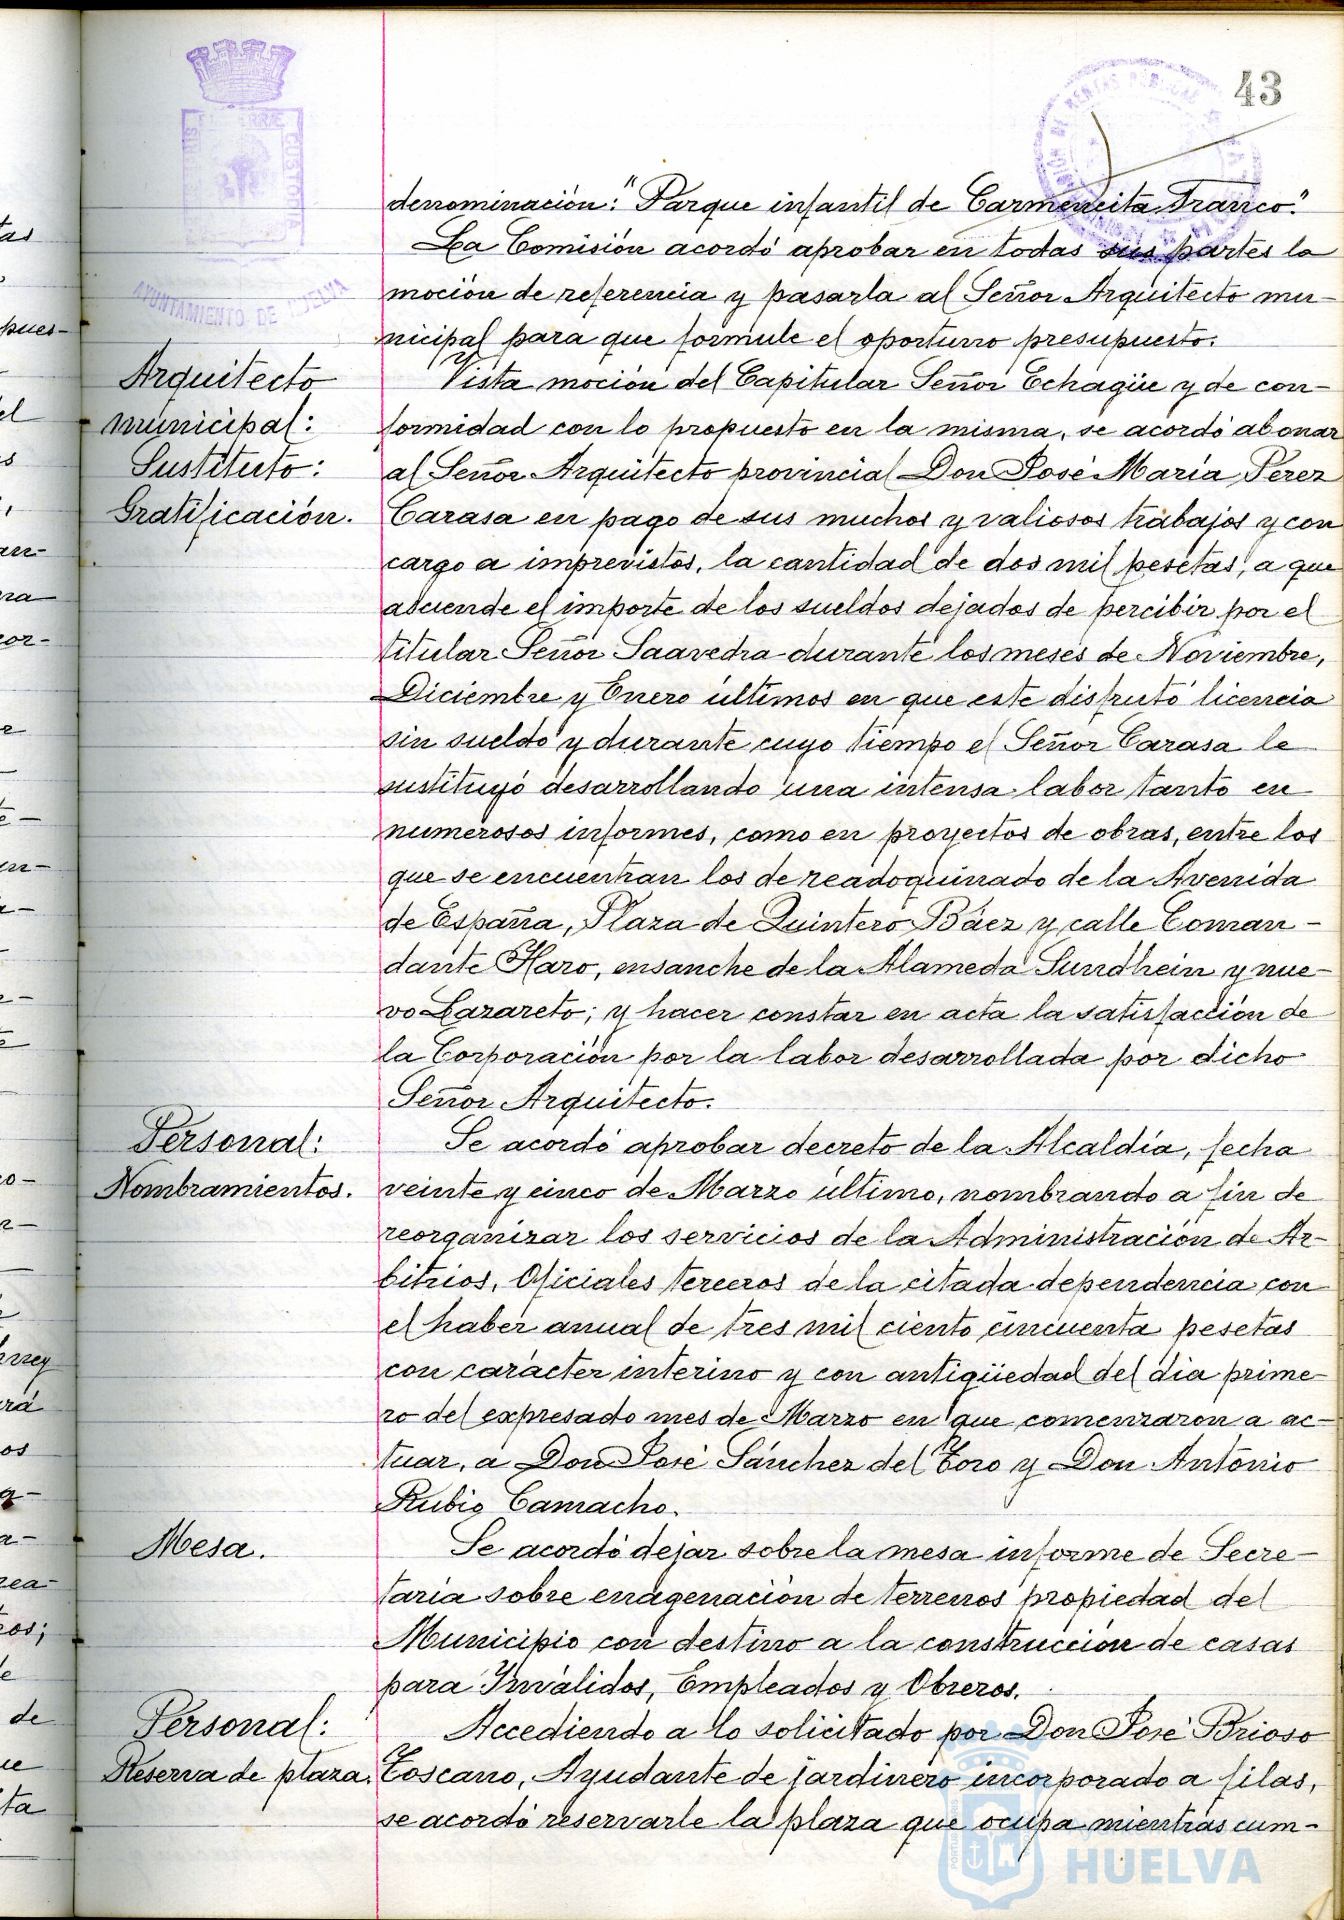 43
denominación: "Parque infantil de Carmencita Franco."
La Comisión acordó aprobar en todas sus partes la
moción de referencia y pasarla al Señor Arquitecto mu-
nicipal para que formule el oportuno presupuesto.
Arquitecto
municipal:
Sustituto:
Gratificación.
Vista moción del Capitular Señor Echagüe y de con-
formidad con lo propuesto en la misma, se acordó abonar
al Señor Arquitecto provincial Don José María Pérez
Carasa en pago de sus muchos y valiosos trabajos y con
cargo a imprevistos, la cantidad de dos mil pesetas, a que
asciende el importe de los sueldos dejados de percibir por el
titular Señor Saavedra durante los meses de Noviembre,
Diciembre y Enero últimos en que este disfrutó licencia
sin sueldo y durante cuyo tiempo el Señor Carasa le
sustituyó desarrollando una intensa labor tanto en
numerosos informes, como en proyectos de obras, entre los
que se encuentran los de readoquinado de la Avenida
de España, Plaza de Quintero Báez y calle Coman-
dante Haro, ensanche de la Alameda Sundhein y nue-
vo Lazareto; y hacer constar en acta la satisfacción de
la Corporación por la labor desarrollada por dicho
Señor Arquitecto.
Personal:
Nombramientos.
Se acordó aprobar decreto de la Alcaldía, fecha
veinte y cinco de Marzo último, nombrando a fin de
reorganizar los servicios de la Administración de Ar-
bitrios, Oficiales terceros de la citada dependencia con
el haber anual de tres mil ciento cincuenta pesetas
con carácter interino y con antigüedad del día prime-
ro del expresado mes de Marzo en que comenzaron a ac-
tuar, a Don José Sánchez del Toro y Don Antonio
Rubio Camacho.
Mesa.
Se acordó dejar sobre la mesa informe de Secre-
taría sobre enagenación de terrenos propiedad del
Municipio con destino a la construcción de casas
para Inválidos, Empleados y Obreros.
Personal:
Reserva de plaza.
Accediendo a lo solicitado por Don José Brioso
Toscano, Ayudante de jardinero incorporado a filas,
se acordó reservarle la plaza que ocupa mientras cum-
AYUNTAMIENTO DE HUELVA
HUELVA